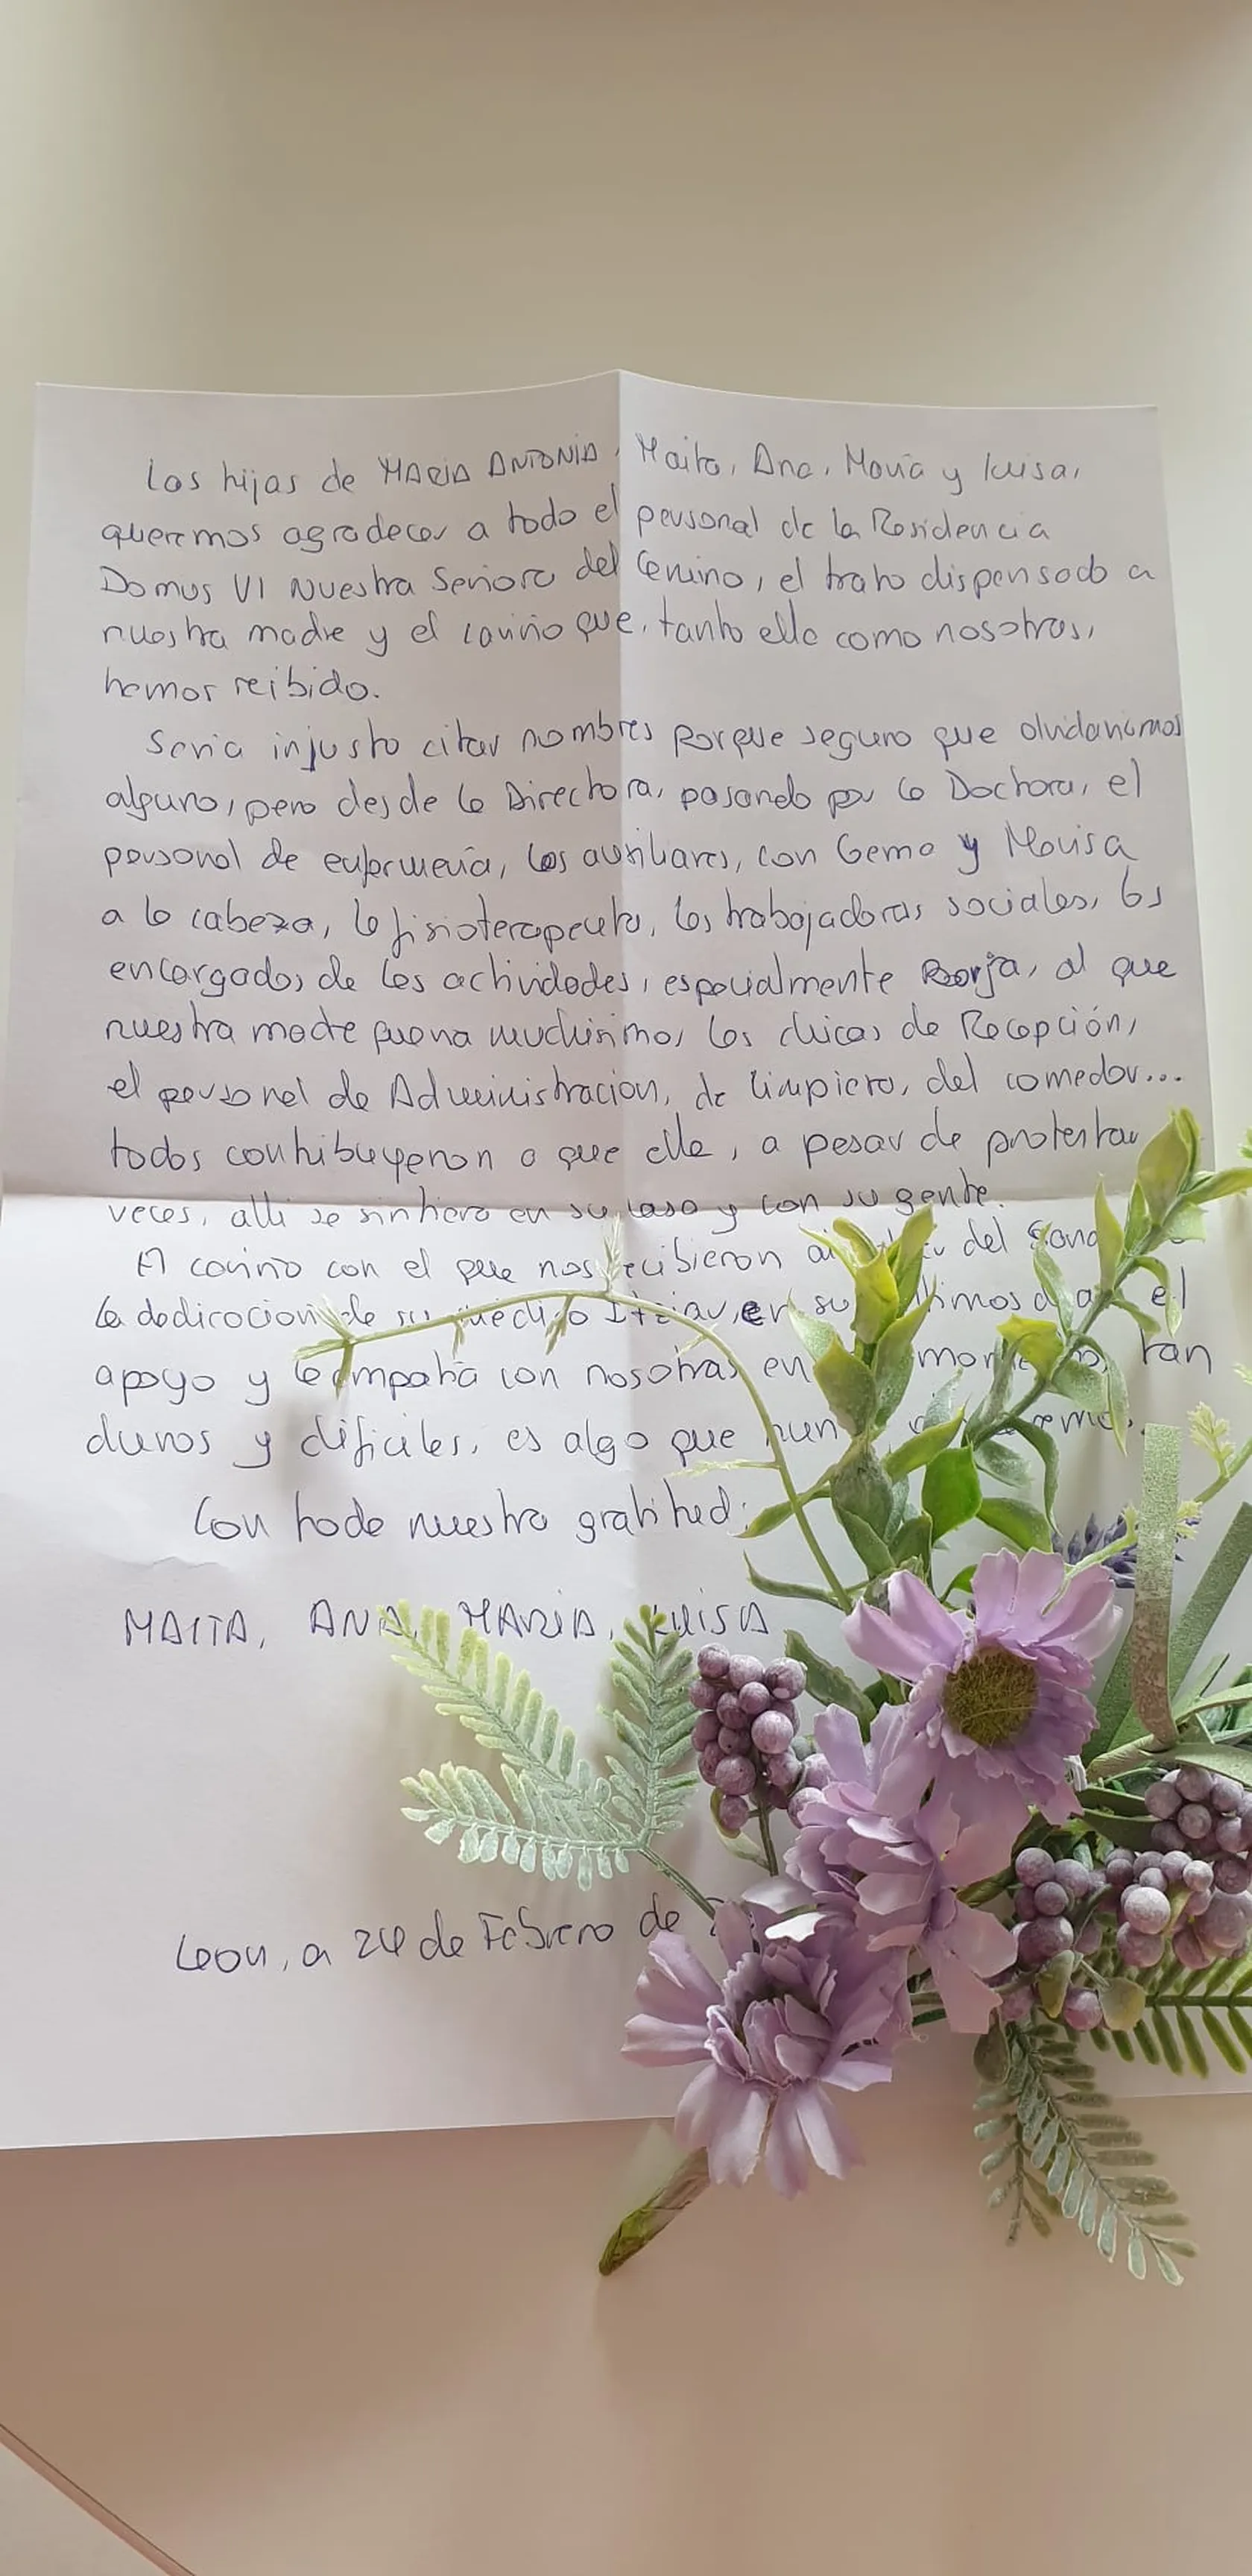 Las hijas de MARIA ANTONIA, Maita, Ana, María y Luisa,
queremos agradecer a todo el personal de la Residencia
Domus VI Nuestra Señora del Camino, el trato dispensado a
nuestra madre y el cariño que, tanto ella como nosotras,
hemos reibido.
Seria injusto citar nombres porque seguro que olvidaríamos
alguno, pero desde la Directora, pasando por la Doctora, el
personal de enfermería, las auxiliares, con Gema y Marisa
a la cabeza, la fisioterapeuta, las trabajadoras sociales, los
encargados de las actividades, especialmente Borja, al que
nuestra madre quería muchísimo, las chicas de Recepción,
el personal de Administracion, de limpieza, del comedor...
todos contribuyeron a que ella, a pesar de protestar
veces, allí se sintiera en su casa y con su gente.
El cariño con el que nos recibieron del
la dedicacion de su médico Itziar, en su el
apoyo y la empatía con nosotras en tan
duros y difíciles, es algo que
Con toda nuestra gratitud:
MAITA, ANA, MARIA, LUISA
Leon, a 24 de Febrero de